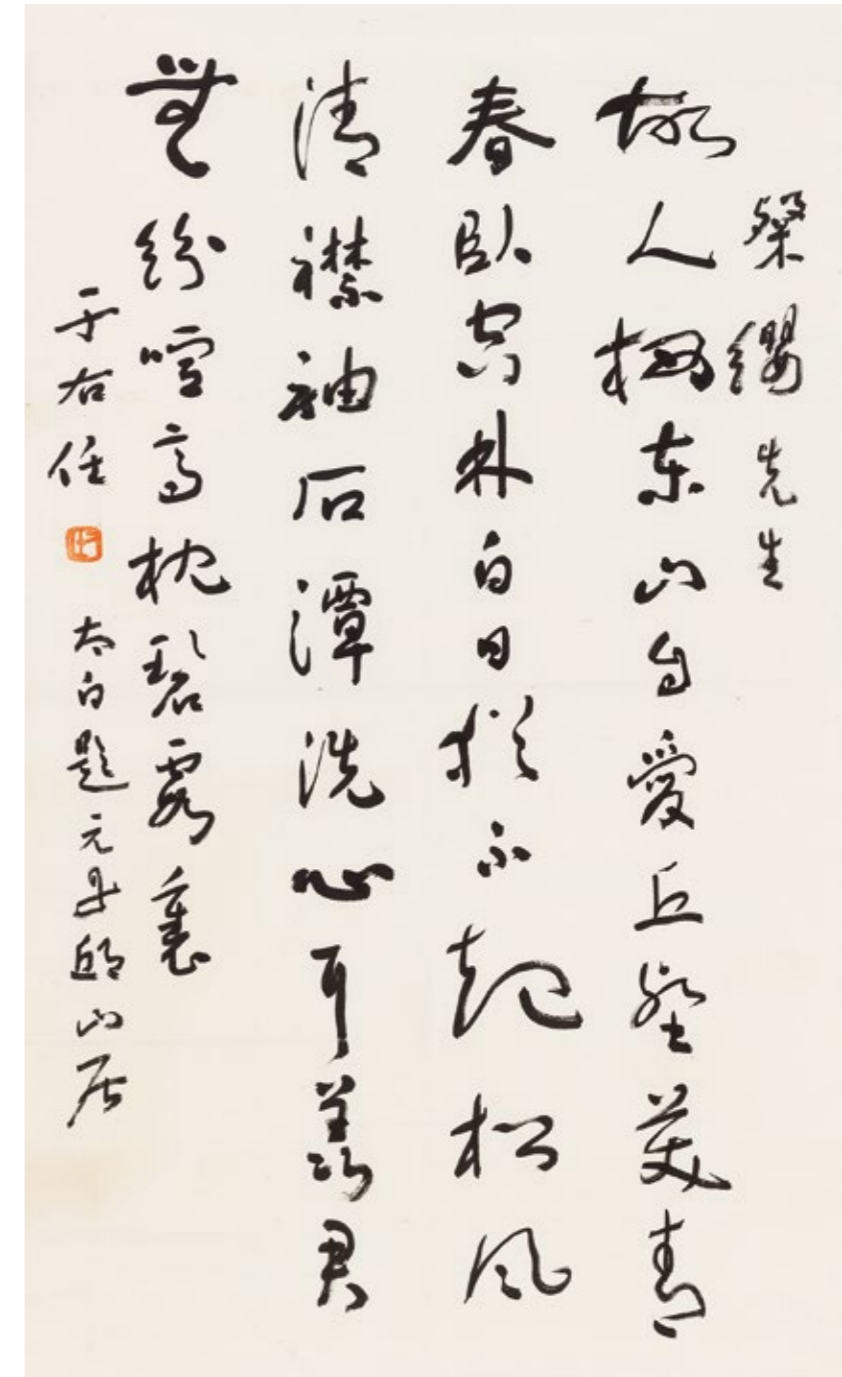 粲纓先生
故人棲東山自愛丘壑美青
春臥空林白日猶不起松風
清襟袖石潭洗心耳羨君
無紛喧高枕碧霞裏
于右任 太白題元丹邱山居